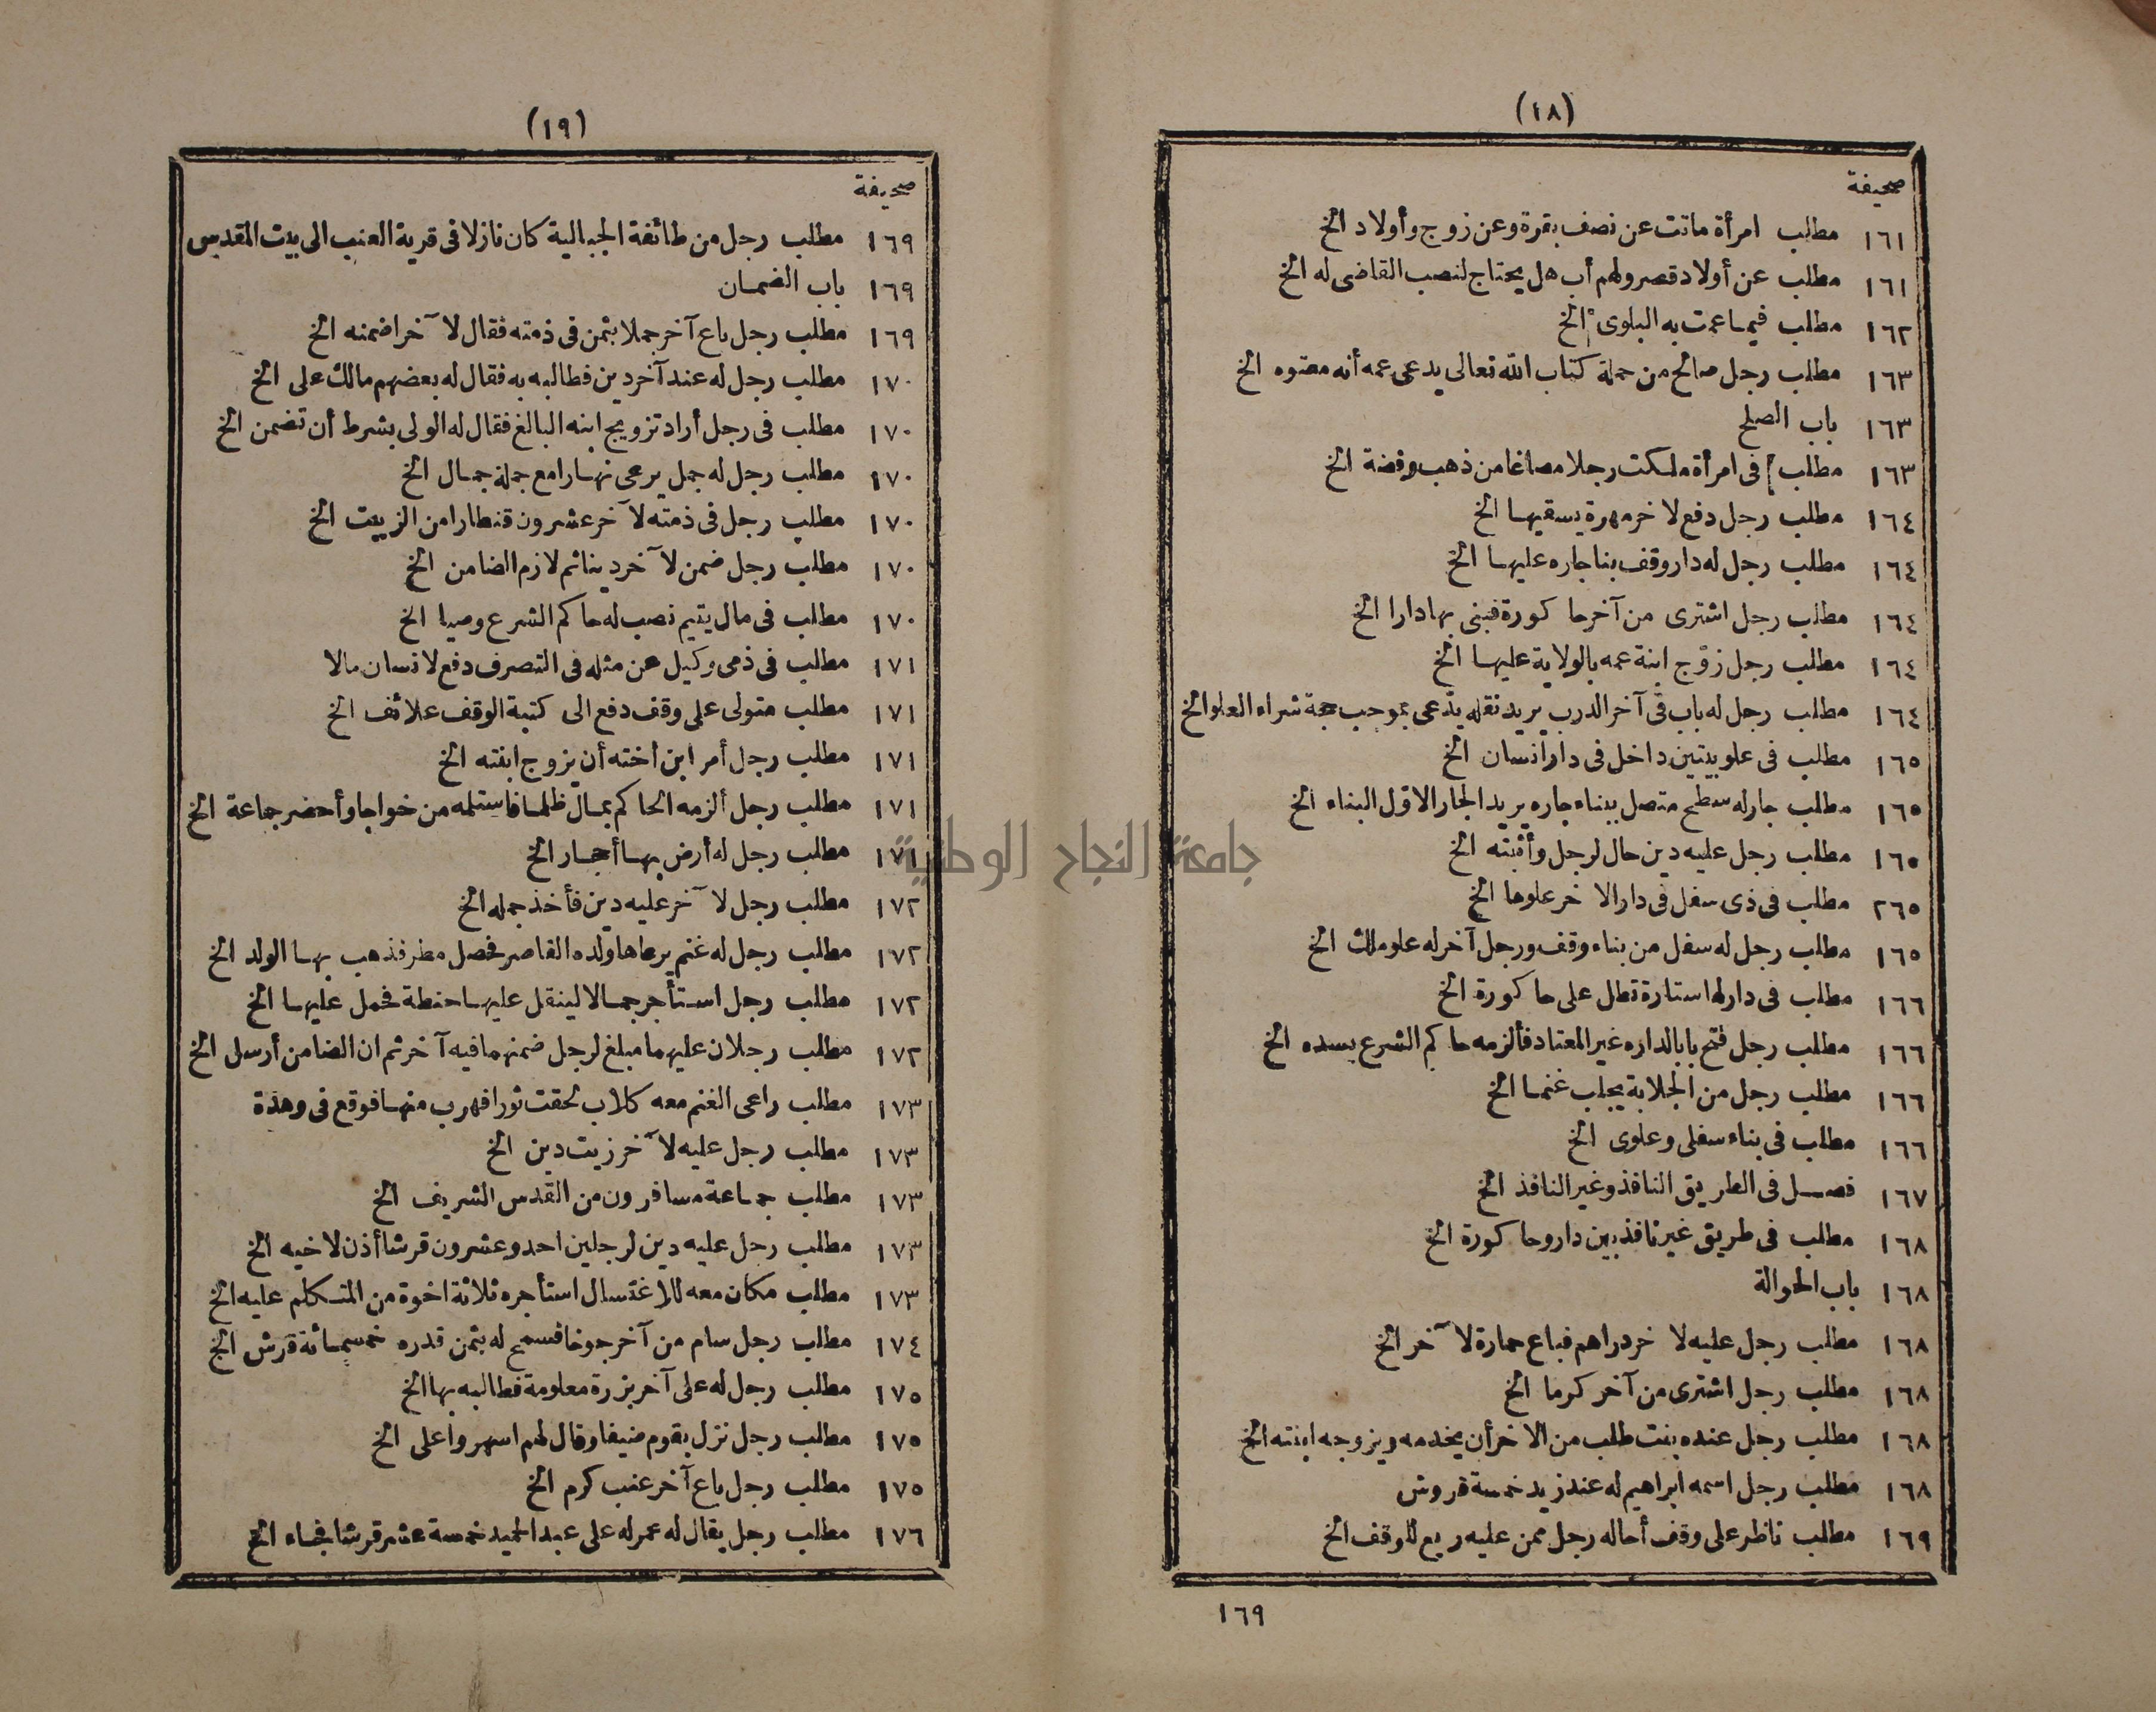 (١٨)
صحيفة
١٦١ مطلب امرأة ماتت عن نصف بقرة وعن زوج وأولاد الخ
١٦١ مطلب عن أولاد قصر ولهم أب هل يحتاج لنصب القاضى له الخ
١٦٢ مطلب فيما عمت به البلوى الخ
١٦٣ مطلب رجل صالح من حملة كتاب الله تعالى يدعى عمه أنه معتوه الخ
١٦٣ باب الصلح
١٦٣ مطلب فى امرأة ملكت رجلا مصاغا من ذهب وفضة الخ
١٦٤ مطلب رجل دفع لاخر مهرة يسقيها الخ
١٦٤ مطلب رجل له دار وقف بنا جاره عليها الخ
١٦٤ مطلب رجل اشترى من آخر حاكورة فبنى بها دارا الخ
١٦٤ مطلب رجل زوّج ابنة عمه بالولاية عليها الخ
١٦٤ مطلب رجل له باب فى آخر الدرب يريد نقله يدعى بموجب حجة شراء العلو الخ
١٦٥ مطلب فى علو بيتين داخل فى دار انسان الخ
١٦٥ مطلب جار له سطح متصل ببناء جاره يريد الجار الاوّل البناء الخ
١٦٥ مطلب رجل عليه دين حال لرجل وأثبته الخ
٢٦٥ مطلب فى ذى سفل فى دار الاخر علوها الخ
١٦٥ مطلب رجل له سفل من بناء وقف ورجل آخر له علو ملك الخ
١٦٦ مطلب فى دار لها ستارة تطل على حاكورة الخ
١٦٦ مطلب رجل فتح بابا لداره غير المعتاد فألزمه حاكم الشرع بسده الخ
١٦٦ مطلب رجل من الجلابة يجلب غنما الخ
١٦٦ مطلب فى بناء سفلى وعلوى الخ
١٦٧ فصل فى الطريق النافذ وغير النافذ الخ
١٦٨ مطلب فى طريق غير نافذ بين دار وحاكورة الخ
١٦٨ باب الحوالة
١٦٨ مطلب رجل عليه لاخر دراهم فباع حمارة لآخر الخ
١٦٨ مطلب رجل اشترى من آخر كرما الخ
١٦٨ مطلب رجل عنده بنت طلب من الاخر أن يخدمه ويزوجه ابنته الخ
١٦٨ مطلب رجل اسمه ابراهيم له عند زيد خمسة قروش
١٦٩ مطلب ناظر على وقف أحاله رجل ممن عليه ريع للوقف الخ
١٦٩
(١٩)
صحيفة
١٦٩ مطلب رجل من طائفة الجبالية كان نازلا فى قرية العنب الى بيت المقدس
١٦٩ باب الضمان
١٦٩ مطلب رجل باع آخر جملا بثمن فى ذمته فقال لآخر اضمنه الخ
١٧٠ مطلب رجل له عند آخر دين فطالبه به فقال له بعضهم مالك على الخ
١٧٠ مطلب فى رجل أراد تزويج ابنه البالغ فقال له الولى بشرط أن تضمن الخ
١٧٠ مطلب رجل له جمل يرعى نهارا مع جملة جمال الخ
١٧٠ مطلب رجل فى ذمته لآخر عشرون قنطارا من الزيت الخ
١٧٠ مطلب رجل ضمن لآخر دينا ثم لازم الضامن الخ
١٧٠ مطلب فى مال يتيم نصب له حاكم الشرع وصيا الخ
١٧١ مطلب فى ذمى وكيل عن مثله فى التصرف دفع لانسان مالا
١٧١ مطلب متولى على وقف دفع الى كتبة الوقف علائف الخ
١٧١ مطلب رجل أمر ابن اخته أن يزوج ابنته الخ
١٧١ مطلب رجل ألزمه الحاكم بمال ظلما فاستلمه من خواجا وأحضر جماعة الخ
١٧١ مطلب رجل له أرض بها أحجار الخ
١٧٢ مطلب رجل لآخر عليه دين فأخذ جمله الخ
١٧٢ مطلب رجل له غنم يرعاها ولده القاصر فحصل مطر فذهب بها الولد الخ
١٧٢ مطلب رجل استأجر جمالا لينقل عليها حنطة فحمل عليها الخ
١٧٢ مطلب رجلان عليهما مبلغ لرجل ضمنهما فيه آخر ثم ان الضامن أرسل الخ
١٧٣ مطلب راعى الغنم معه كلاب لحقت ثورا فهرب منها فوقع فى وهذة
١٧٣ مطلب رجل عليه لآخر زيت دين الخ
١٧٣ مطلب جماعة مسافرون من القدس الشريف الخ
١٧٣ مطلب رجل عليه دين لرجلين احد وعشرون قرشا أذن لاخيه الخ
١٧٣ مطلب مكان معه للاغتسال استأجره ثلاثة اخوة من المتكلم عليه الخ
١٧٤ مطلب رجل سام من آخر جوخا فسمح له بثمن قدره خمسمائة قرش الخ
١٧٥ مطلب رجل له على آخر بزرة معلومة فطالبه بها الخ
١٧٥ مطلب رجل نزل بقوم ضيفا وقال لهم اسهروا على الخ
١٧٥ مطلب رجل باع آخر عنب كرم الخ
١٧٦ مطلب رجل يقال له عمر له على عبد الحميد خمسة عشر قرشا فجاء الخ
جامعة النجاح الوطنية